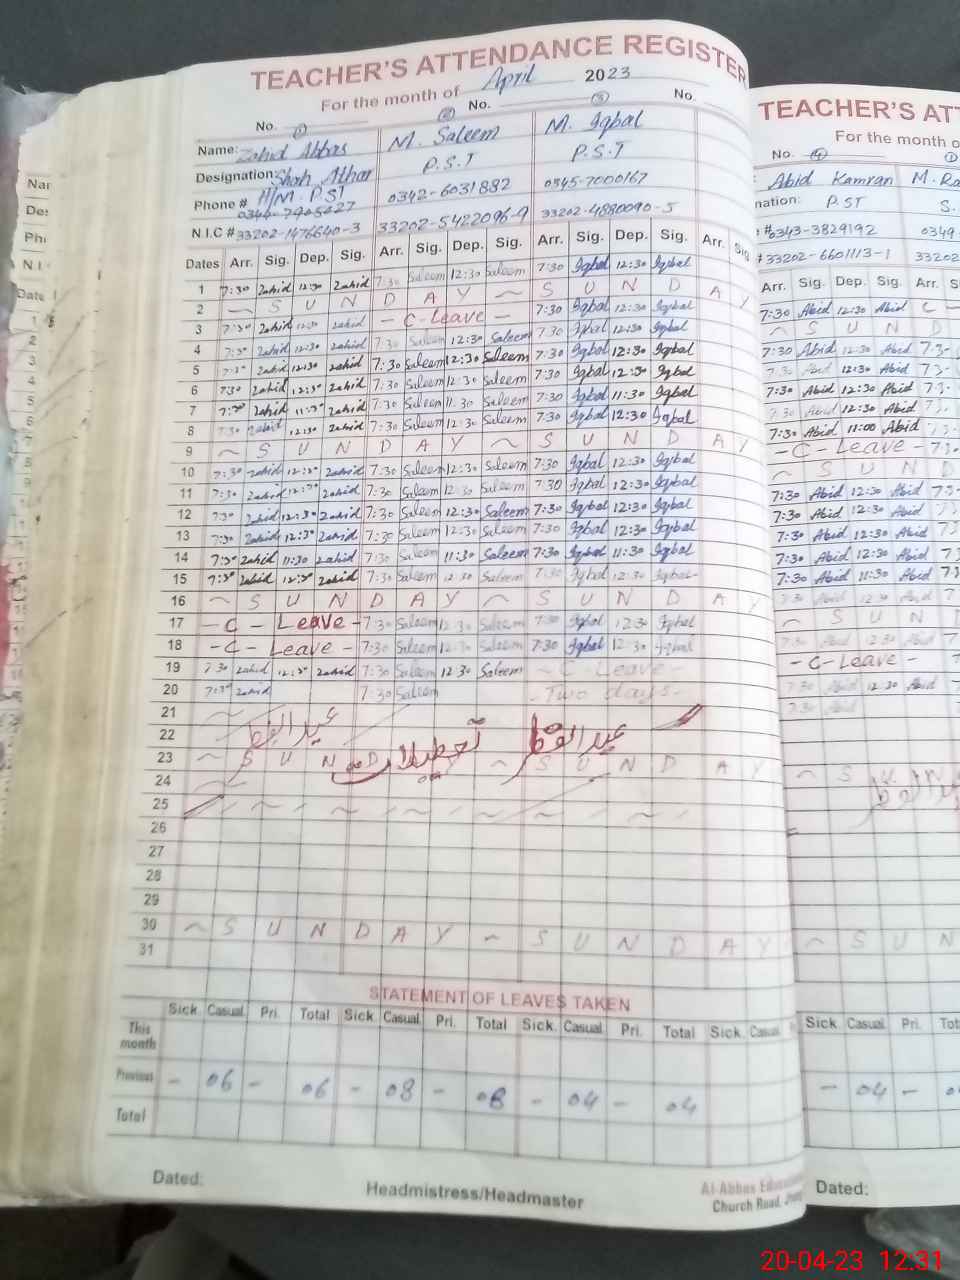 TEACHER'S ATTENDANCE REGISTER
For the month of April 2023
No. 1 No. 2 No. 3 No.
Name: Zahid Abbas M. Saleem M. Iqbal
Designation: Shah Athar P.S.T P.S.T
H/M. P.S.T
Phone # 0342-6031882 0345-7000167
N.I.C # 33202-1476640-3 33202-5422096-9 33202-4880090-5
Dates Arr. Sig. Dep. Sig. Arr. Sig. Dep. Sig. Arr. Sig. Dep. Sig. Arr. Sig.
1 7:30 Zahid 12:30 Zahid 7:30 Saleem 12:30 Saleem 7:30 Iqbal 12:30 Iqbal
2 ~ S U N D A Y ~ S U N D A Y
3 7:30 Zahid 12:30 Zahid - C-Leave - 7:30 Iqbal 12:30 Iqbal
4 7:30 Zahid 12:30 Zahid 7:30 Saleem 12:30 Saleem 7:30 Iqbal 12:30 Iqbal
5 7:30 Zahid 12:30 Zahid 7:30 Saleem 12:30 Saleem 7:30 Iqbal 12:30 Iqbal
6 7:30 Zahid 12:30 Zahid 7:30 Saleem 12:30 Saleem 7:30 Iqbal 12:30 Iqbal
7 7:30 Zahid 11:30 Zahid 7:30 Saleem 11:30 Saleem 7:30 Iqbal 11:30 Iqbal
8 7:30 Zahid 12:30 Zahid 7:30 Saleem 12:30 Saleem 7:30 Iqbal 12:30 Iqbal
9 ~ S U N D A Y ~ S U N D A Y
10 7:30 Zahid 12:30 Zahid 7:30 Saleem 12:30 Saleem 7:30 Iqbal 12:30 Iqbal
11 7:30 Zahid 12:30 Zahid 7:30 Saleem 12:30 Saleem 7:30 Iqbal 12:30 Iqbal
12 7:30 Zahid 12:30 Zahid 7:30 Saleem 12:30 Saleem 7:30 Iqbal 12:30 Iqbal
13 7:30 Zahid 12:30 Zahid 7:30 Saleem 12:30 Saleem 7:30 Iqbal 12:30 Iqbal
14 7:30 Zahid 11:30 Zahid 7:30 Saleem 11:30 Saleem 7:30 Iqbal 11:30 Iqbal
15 7:30 Zahid 12:30 Zahid 7:30 Saleem 12:30 Saleem 7:30 Iqbal 12:30 Iqbal
16 ~ S U N D A Y ~ S U N D A Y
17 - C - Leave - 7:30 Saleem 12:30 Saleem 7:30 Iqbal 12:30 Iqbal
18 - C - Leave - 7:30 Saleem 12:30 Saleem 7:30 Iqbal 12:30 Iqbal
19 7:30 Zahid 12:30 Zahid 7:30 Saleem 12:30 Saleem - C - Leave
20 7:30 Zahid 7:30 Saleem - Two days -
21
22 عید الفطر تعطیلات عید الفطر
23 ~ S U N D A Y ~ S U N D A Y
24
25
26
27
28
29
30 ~ S U N D A Y ~ S U N D A Y
31
STATEMENT OF LEAVES TAKEN
Sick Casual Pri. Total Sick Casual Pri. Total Sick. Casual Pri. Total Sick. Casual
This month
Previous - 06 - 06 - 08 - 08 - 04 - 04
Total
Dated:
Headmistress/Headmaster
Al-Abbas
Church Road,
TEACHER'S
For the month
No. 4
Abid Kamran
P.ST
#0343-3829192 0349-
#33202-6601113-1 33202
Arr. Sig. Dep. Sig. Arr.
7:30 Abid 12:30 Abid C -
~ S U N D
7:30 Abid 12:30 Abid
7:30 Abid 12:30 Abid
7:30 Abid 12:30 Abid
7:30 Abid 12:30 Abid
7:30 Abid 11:00 Abid
- C - Leave -
~ S U N D
7:30 Abid 12:30 Abid
7:30 Abid 12:30 Abid
7:30 Abid 12:30 Abid
7:30 Abid 12:30 Abid
7:30 Abid 11:30 Abid
7:30 Abid 12:30 Abid
~ S U N D
7:30 Abid 12:30 Abid
- C - Leave -
7:30 Abid 12:30 Abid
7:30 Abid
~ S U N
~ S U N
Sick Casual Pri.
- 04 -
Dated:
20-04-23 12:31